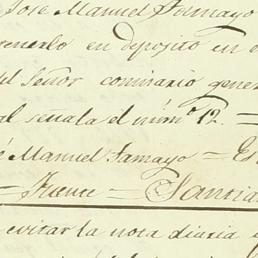 José Manuel Tamayo
tenerlo en deposito en
del Señor comisario gener
al señala el núm.º 12. =
é Manuel Tamayo = Es
= Fuente = Santia
evitar la nota diaria